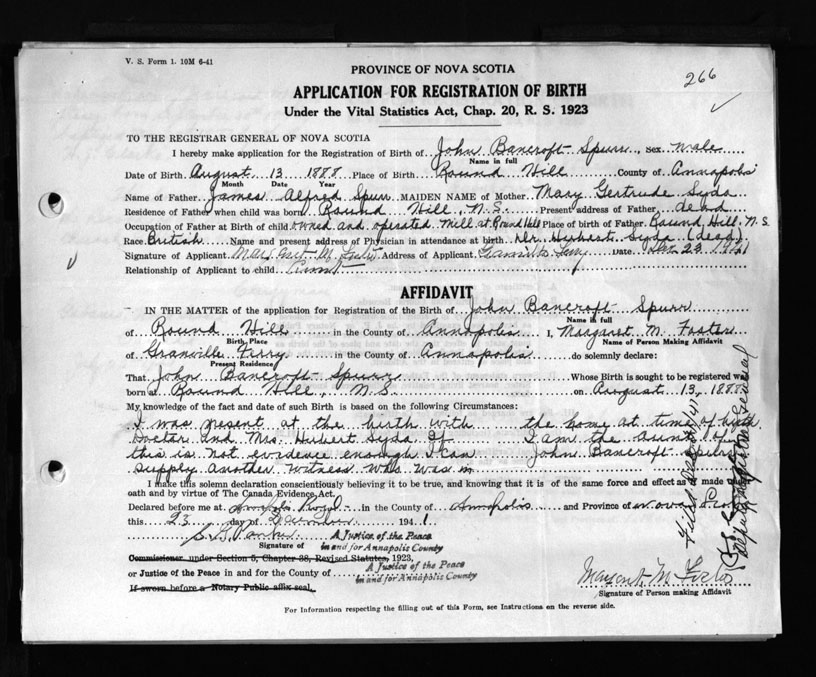 V. S. Form 1. 10M 6-41
266
PROVINCE OF NOVA SCOTIA
APPLICATION FOR REGISTRATION OF BIRTH
Under the Vital Statistics Act, Chap. 20, R. S. 1923
TO THE REGISTRAR GENERAL OF NOVA SCOTIA
I hereby make application for the Registration of Birth of John Bancroft Spurr, Sex male
Name in full
Date of Birth August 13 1888 Place of Birth Round Hill County of Annapolis
Month Date Year
Name of Father James Alfred Spurr MAIDEN NAME of Mother Mary Gertrude Syda
Residence of Father when child was born Round Hill, N.S. Present address of Father dead
Occupation of Father at Birth of child owned and operated Mill at Round Hill Place of birth of Father Round Hill, N.S.
Race British Name and present address of Physician in attendance at birth Dr. Hubert Syda (dead)
Signature of Applicant M. Foster Address of Applicant Granville Ferry Date Dec 23 1941
Relationship of Applicant to child Aunt
AFFIDAVIT
IN THE MATTER of the application for Registration of the Birth of John Bancroft Spurr
Name in full
of Round Hill in the County of Annapolis I, Margaret M. Foster
Birth Place Name of Person Making Affidavit
of Granville Ferry in the County of Annapolis do solemnly declare:
Present Residence
That John Bancroft Spurr Whose Birth is sought to be registered was
born at Round Hill, N.S. on August 13, 1888
My knowledge of the fact and date of such Birth is based on the following Circumstances:
I was present at the birth with the home at time of birth
Doctor and Mrs. Hubert Syda If I am the aunt of
this is not evidence enough I can John Bancroft Spurr
supply another witness was was in
I make this solemn declaration conscientiously believing it to be true, and knowing that it is of the same force and effect as if made under
oath and by virtue of The Canada Evidence Act.
Declared before me at Annapolis Royal in the County of Annapolis and Province of Nova Scotia
this 23 day of December 1941
Signature of A Justice of the Peace
in and for Annapolis County
Commissioner under Section 5, Chapter 38, Revised Statutes, 1923,
or Justice of the Peace in and for the County of A Justice of the Peace
in and for Annapolis County
If sworn before a Notary Public affix seal.
Margaret M. Foster
Signature of Person making Affidavit
For Information respecting the filling out of this Form, see Instructions on the reverse side.
Deputy Registrar General